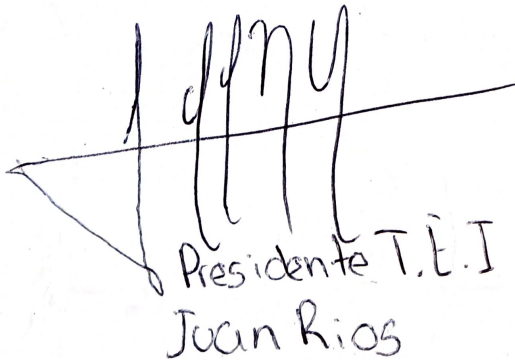 Presidente T.E.I
Juan Rios